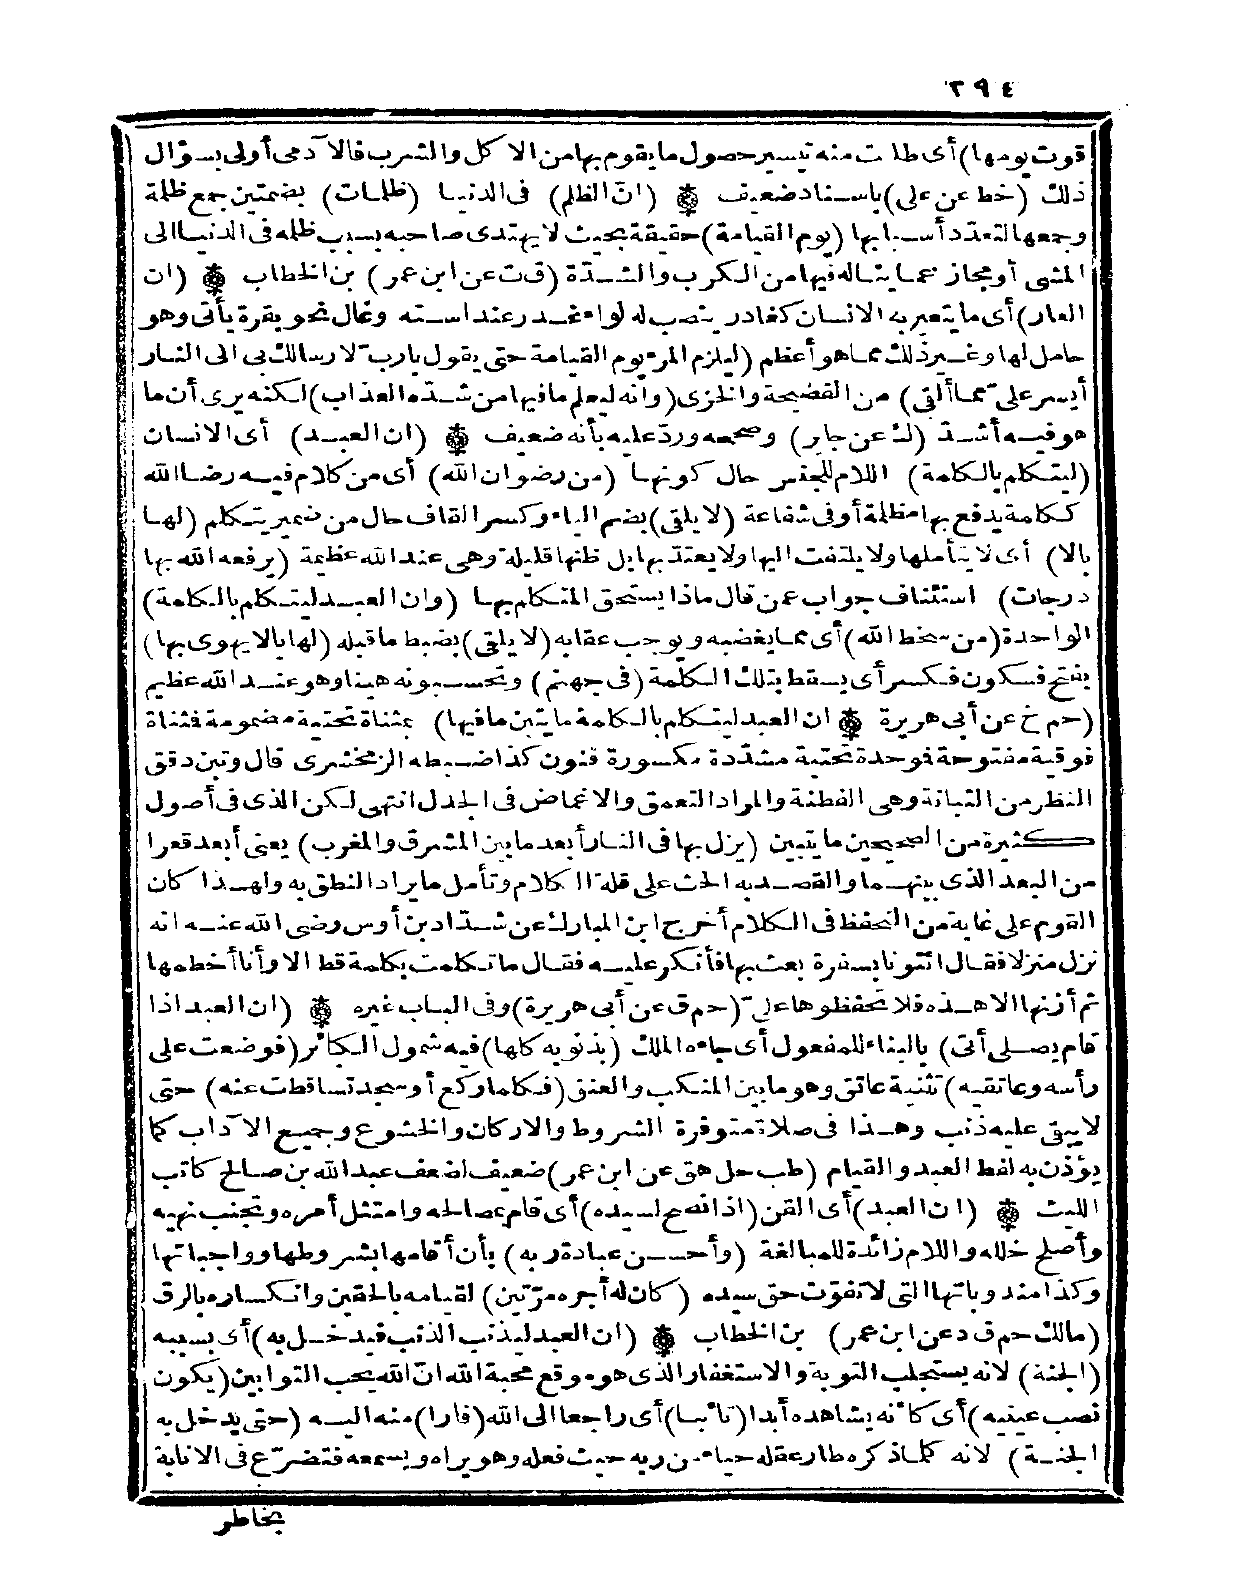 ٢٩٤
قوت يومها) أى طلبت منه تيسير حصول ما يقوم بها من الاكل والشرب فالآدمى أولى بسؤال
ذلك (خط عن على) باسناد ضعيف ۞ (ان الظلم) فى الدنيا (ظلمات) بضمتين جمع ظلمة
وجمعها لتعدد أسبابها (يوم القيامة) حقيقة بحيث لا يهتدى صاحبه بسبب ظلمه فى الدنيا الى
المشى أو مجاز عما يناله فيها من الكرب والشدة (ق ت عن ابن عمر) بن الخطاب ۞ (ان
العار) أى ما يتعير به الانسان كغادر ينصب له لواء غدر عند استه وغال نحو بقرة يأتى وهو
حامل لها وغير ذلك مما هو أعظم (ليلزم المرء يوم القيامة حتى يقول يارب لارسالك بى الى النار
أيسر علىّ مما ألقى) من الفضيحة والخزى (وانه ليعلم ما فيها من شدة العذاب) لكنه يرى أن ما
هو فيه أشد (ك عن جابر) وصححه وردّ عليه بأنه ضعيف ۞ (ان العبد) أى الانسان
(ليتكلم بالكلمة) اللام للجنس حال كونها (من رضوان الله) أى من كلام فيه رضا الله
ككلمة يدفع بها مظلمة أو فى شفاعة (لا يلقى) بضم الياء وكسر القاف حال من ضمير يتكلم (لها
بالا) أى لا يتأملها ولا يلتفت اليها ولا يعتد بها بل ظنها قليلة وهى عند الله عظيمة (يرفعه الله بها
درجات) استئناف جواب عمن قال ماذا يستحق المتكلم بها (وان العبد ليتكلم بالكلمة)
الواحدة (من سخط الله) أى مما يغضبه ويوجب عقابه (لا يلقى) بضبط ما قبله (لها بالا يهوى بها)
بفتح فسكون فكسر أى يسقط بتلك الكلمة (فى جهنم) وتحسبونه هينا وهو عند الله عظيم
(حم خ عن أبى هريرة ۞ ان العبد ليتكلم بالكلمة ما يتبين ما فيها) بمثناة تحتية مضمومة فمثناة
فوقية مفتوحة فوحدة تحتية مشدّدة مكسورة فنون كذا ضبطه الزمخشرى قال وتبن دقق
النظر من التبانة وهى الفطنة والمراد التعمق والاغماض فى الجدل انتهى لكن الذى فى أصول
كثيرة من الصحيحين ما يتبين (يزل بها فى النار أبعد ما بين المشرق والمغرب) يعنى أبعد قعرا
من البعد الذى بينهما والقصد به الحث على قلة الكلام وتأمل ما يراد النطق به ولهذا كان
القوم على غاية من التحفظ فى الكلام أخرج ابن المبارك عن شداد بن أوس رضى الله عنه انه
نزل منزلا فقال ائتونا بسفرة نعبث بها فأنكر عليه فقال ما تكلمت بكلمة قط الا وأنا أخطمها
ثم أزنها الا هذه فلا تحفظوها علىّ (حم ق عن أبى هريرة) وفى الباب غيره ۞ (ان العبد اذا
قام يصلى أتى) بالبناء للمفعول أى جاءه الملك (بذنوبه كلها) فيه شمول الكبائر (فوضعت على
رأسه وعاتقيه) تثنية عاتق وهو ما بين المنكب والعنق (فكلما ركع أو سجد تساقطت عنه) حتى
لا يبقى عليه ذنب وهذا فى صلاة متوفرة الشروط والاركان والخشوع وجميع الآداب كما
يؤذن به لفظ العبد والقيام (طب حل هق عن ابن عمر) ضعيف لضعف عبد الله بن صالح كاتب
الليث ۞ (ان العبد) أى القن (اذا نصح لسيده) أى قام بمصالحه وامتثل أمره وتجنب نهيه
وأصلح خلله واللام زائدة للمبالغة (وأحسن عبادة ربه) بأن أقامها بشروطها وواجباتها
وكذا مندوباتها التى لا تفوّت حق سيده (كان له أجره مرّتين) لقيامه بالحقين وانكساره بالرق
(مالك حم ق د عن ابن عمر) بن الخطاب ۞ (ان العبد ليذنب الذنب فيدخل به) أى بسببه
(الجنة) لانه يستجلب التوبة والاستغفار الذى هو موقع محبة الله ان الله يحب التوابين (يكون
نصب عينيه) أى كأنه يشاهده أبدا (تائبا) أى راجعا الى الله (فارا) منه اليه (حتى يدخل به
الجنة) لانه كلما ذكره طار عقله حياء من ربه حيث فعله وهو يراه ويسمعه فتضرّع فى الانابة
بخاطر